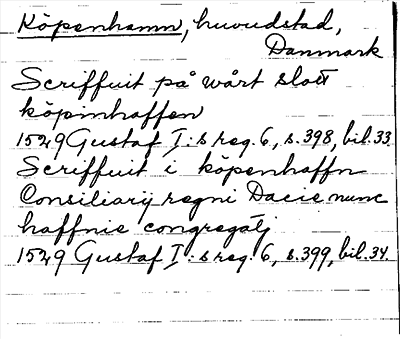 Köpenhamn, huvudstad,
Danmark
Scriffuit på wårt slott
köpmhaffen
1529 Gustaf I:s reg. 6, s. 398, bil. 33.
Scriffuit i köpenhaffn
Consiliarij regni Dacie nunc
haffnie congregatj
1529 Gustaf I:s reg. 6, s. 399, bil. 34.